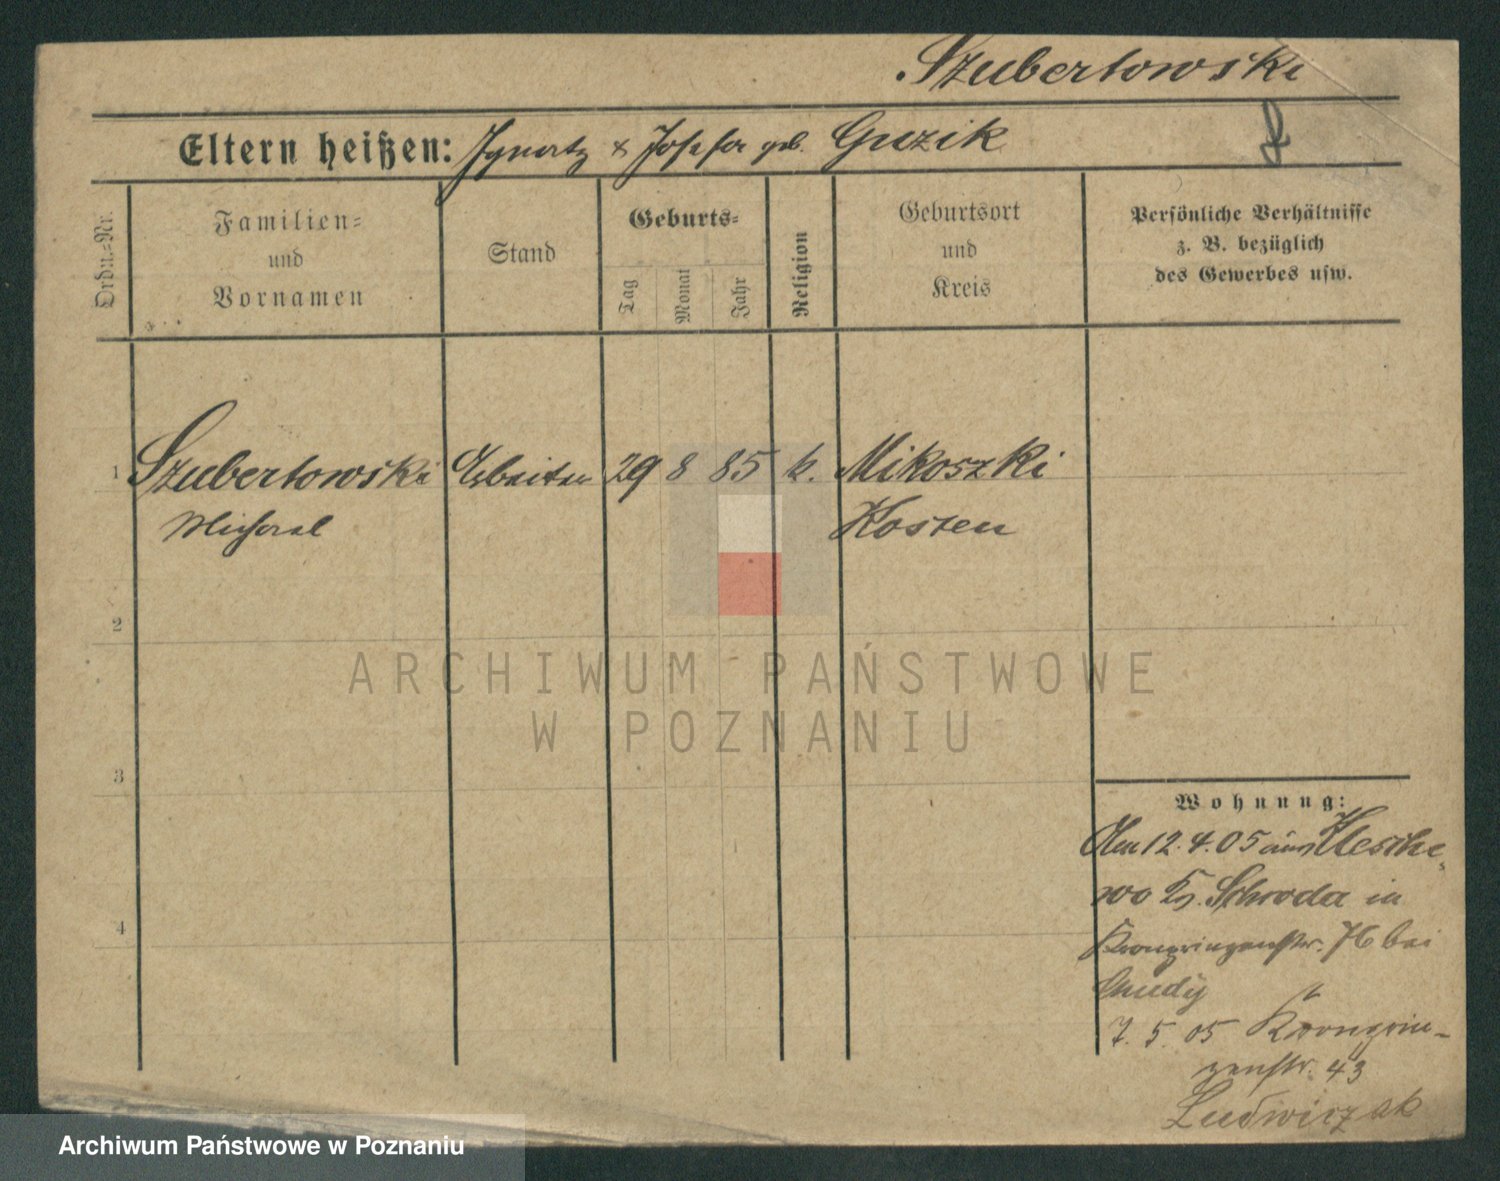 Szubertowski
Eltern heißen: Ignatz & Josefa geb. Guzik
Ordn.-Nr.
Familien-
und
Vornamen
Stand
Geburts-
Tag
Monat
Jahr
Religion
Geburtsort
und
Kreis
Persönliche Verhältnisse
z. B. bezüglich
des Gewerbes usw.
1 Szubertowski Arbeiter 29 8 85 k. Mikoszki
Michael Kosten
2
ARCHIWUM PAŃSTWOWE
W POZNANIU
3
Wohnung:
Am 12.4.05 aus Klescze-
wo Kr. Schroda in
Kronprinzenstr. 76 bei
4
Chudy
7. 5. 05 Kronprin-
zenstr. 43
Ludwiczak
Archiwum Państwowe w Poznaniu